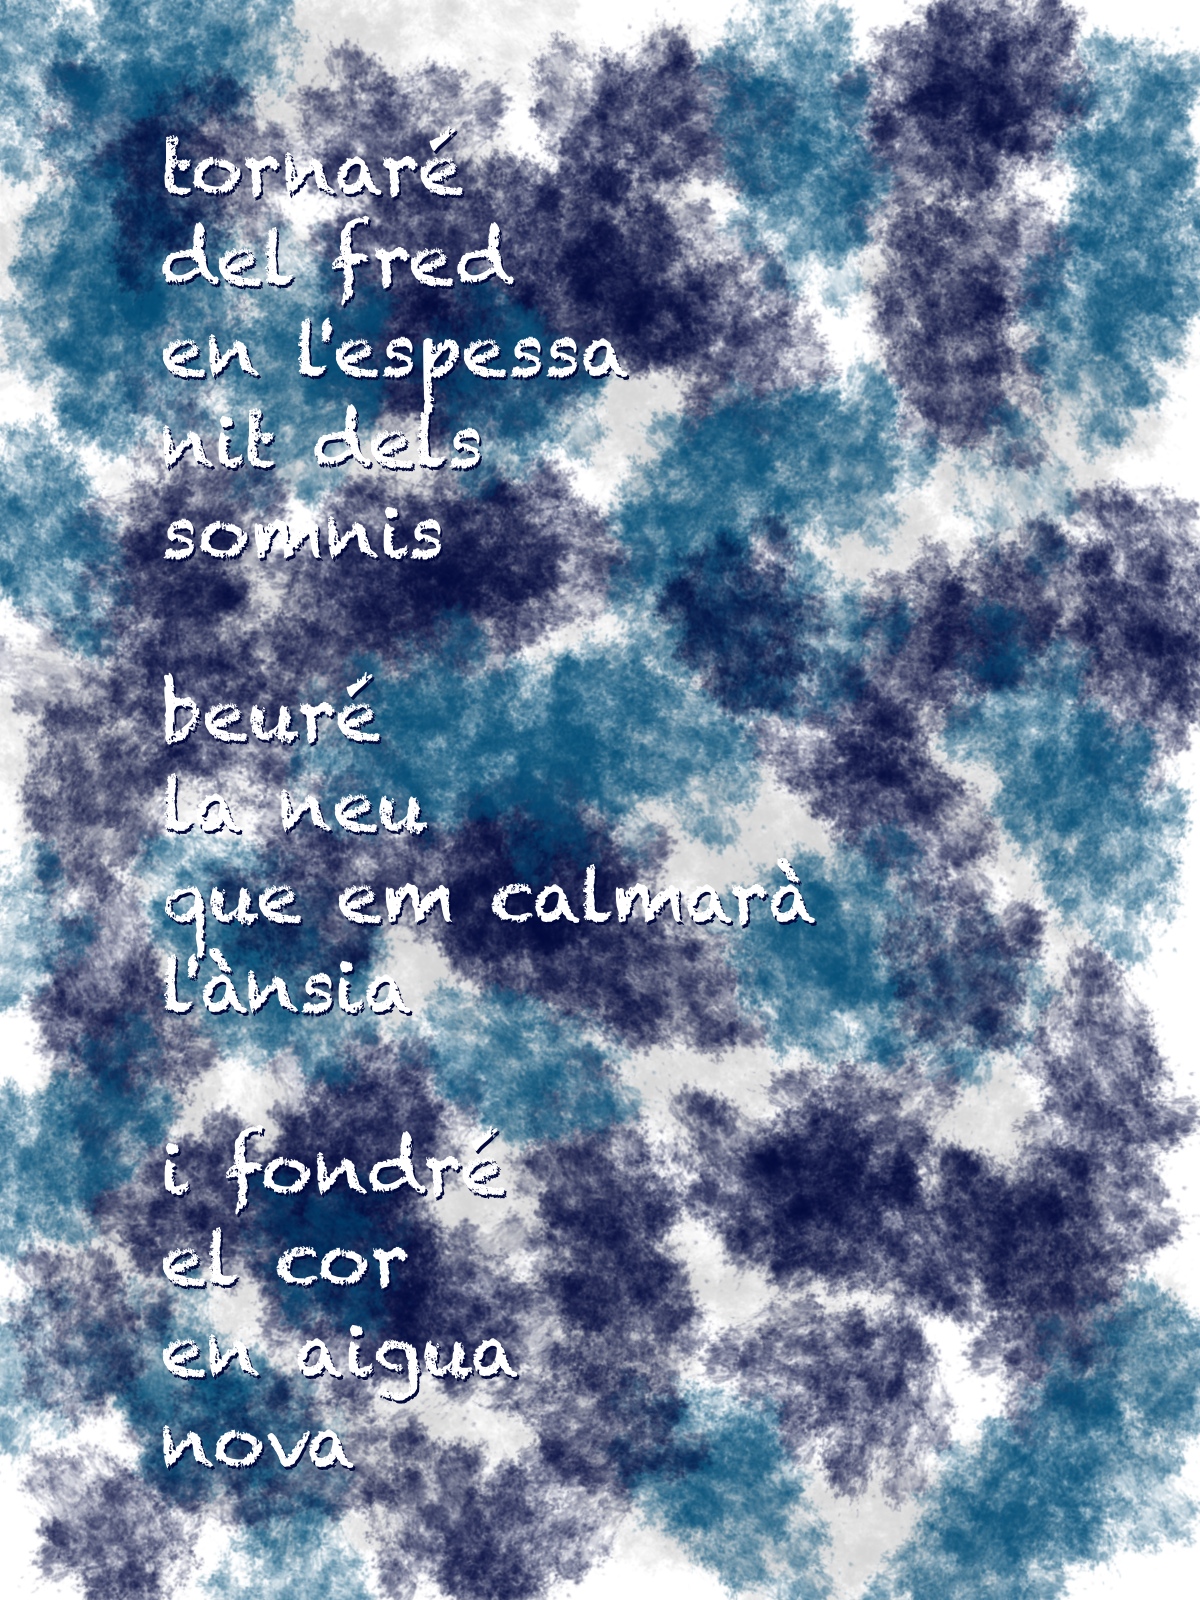 tornaré
del fred
en l'espessa
nit dels
somnis

beuré
la neu
que em calmarà
l'ànsia

i fondré
el cor
en aigua
nova